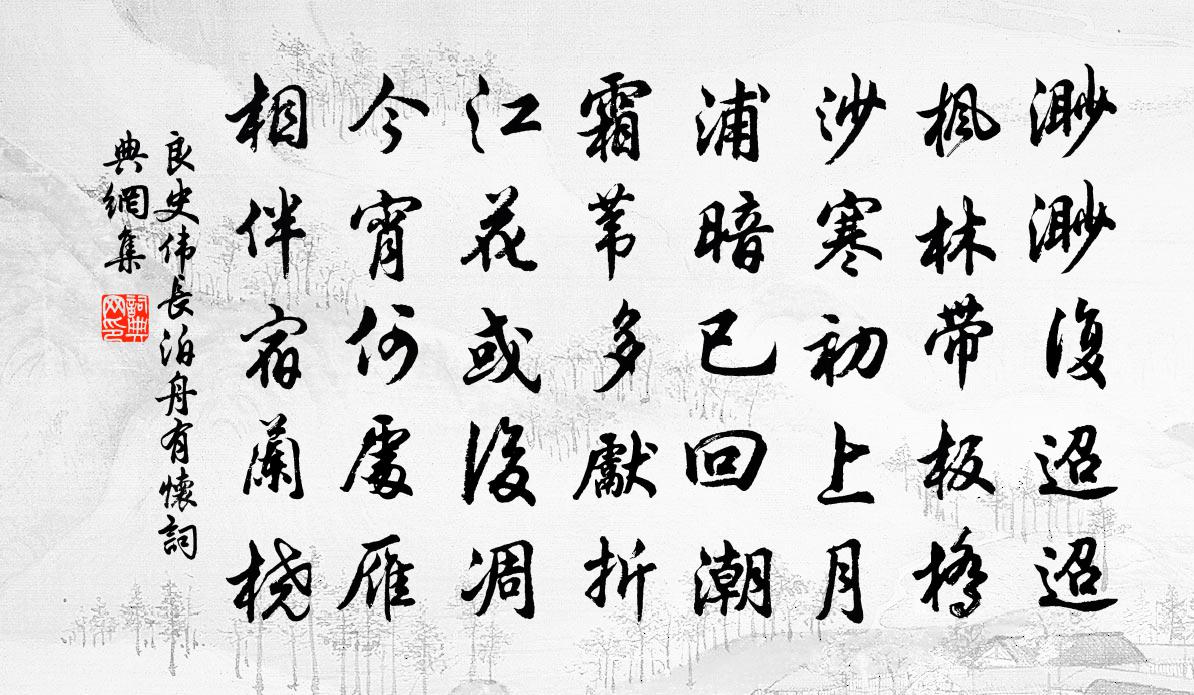 渺渺復迢迢
枫林带板橋
沙寒初上月
浦暗已回潮
霜苇多獻折
江花或後凋
今宵何處雁
相伴宿蘭桡
良史伟長泊舟有懷詞
典網集
詞典網印